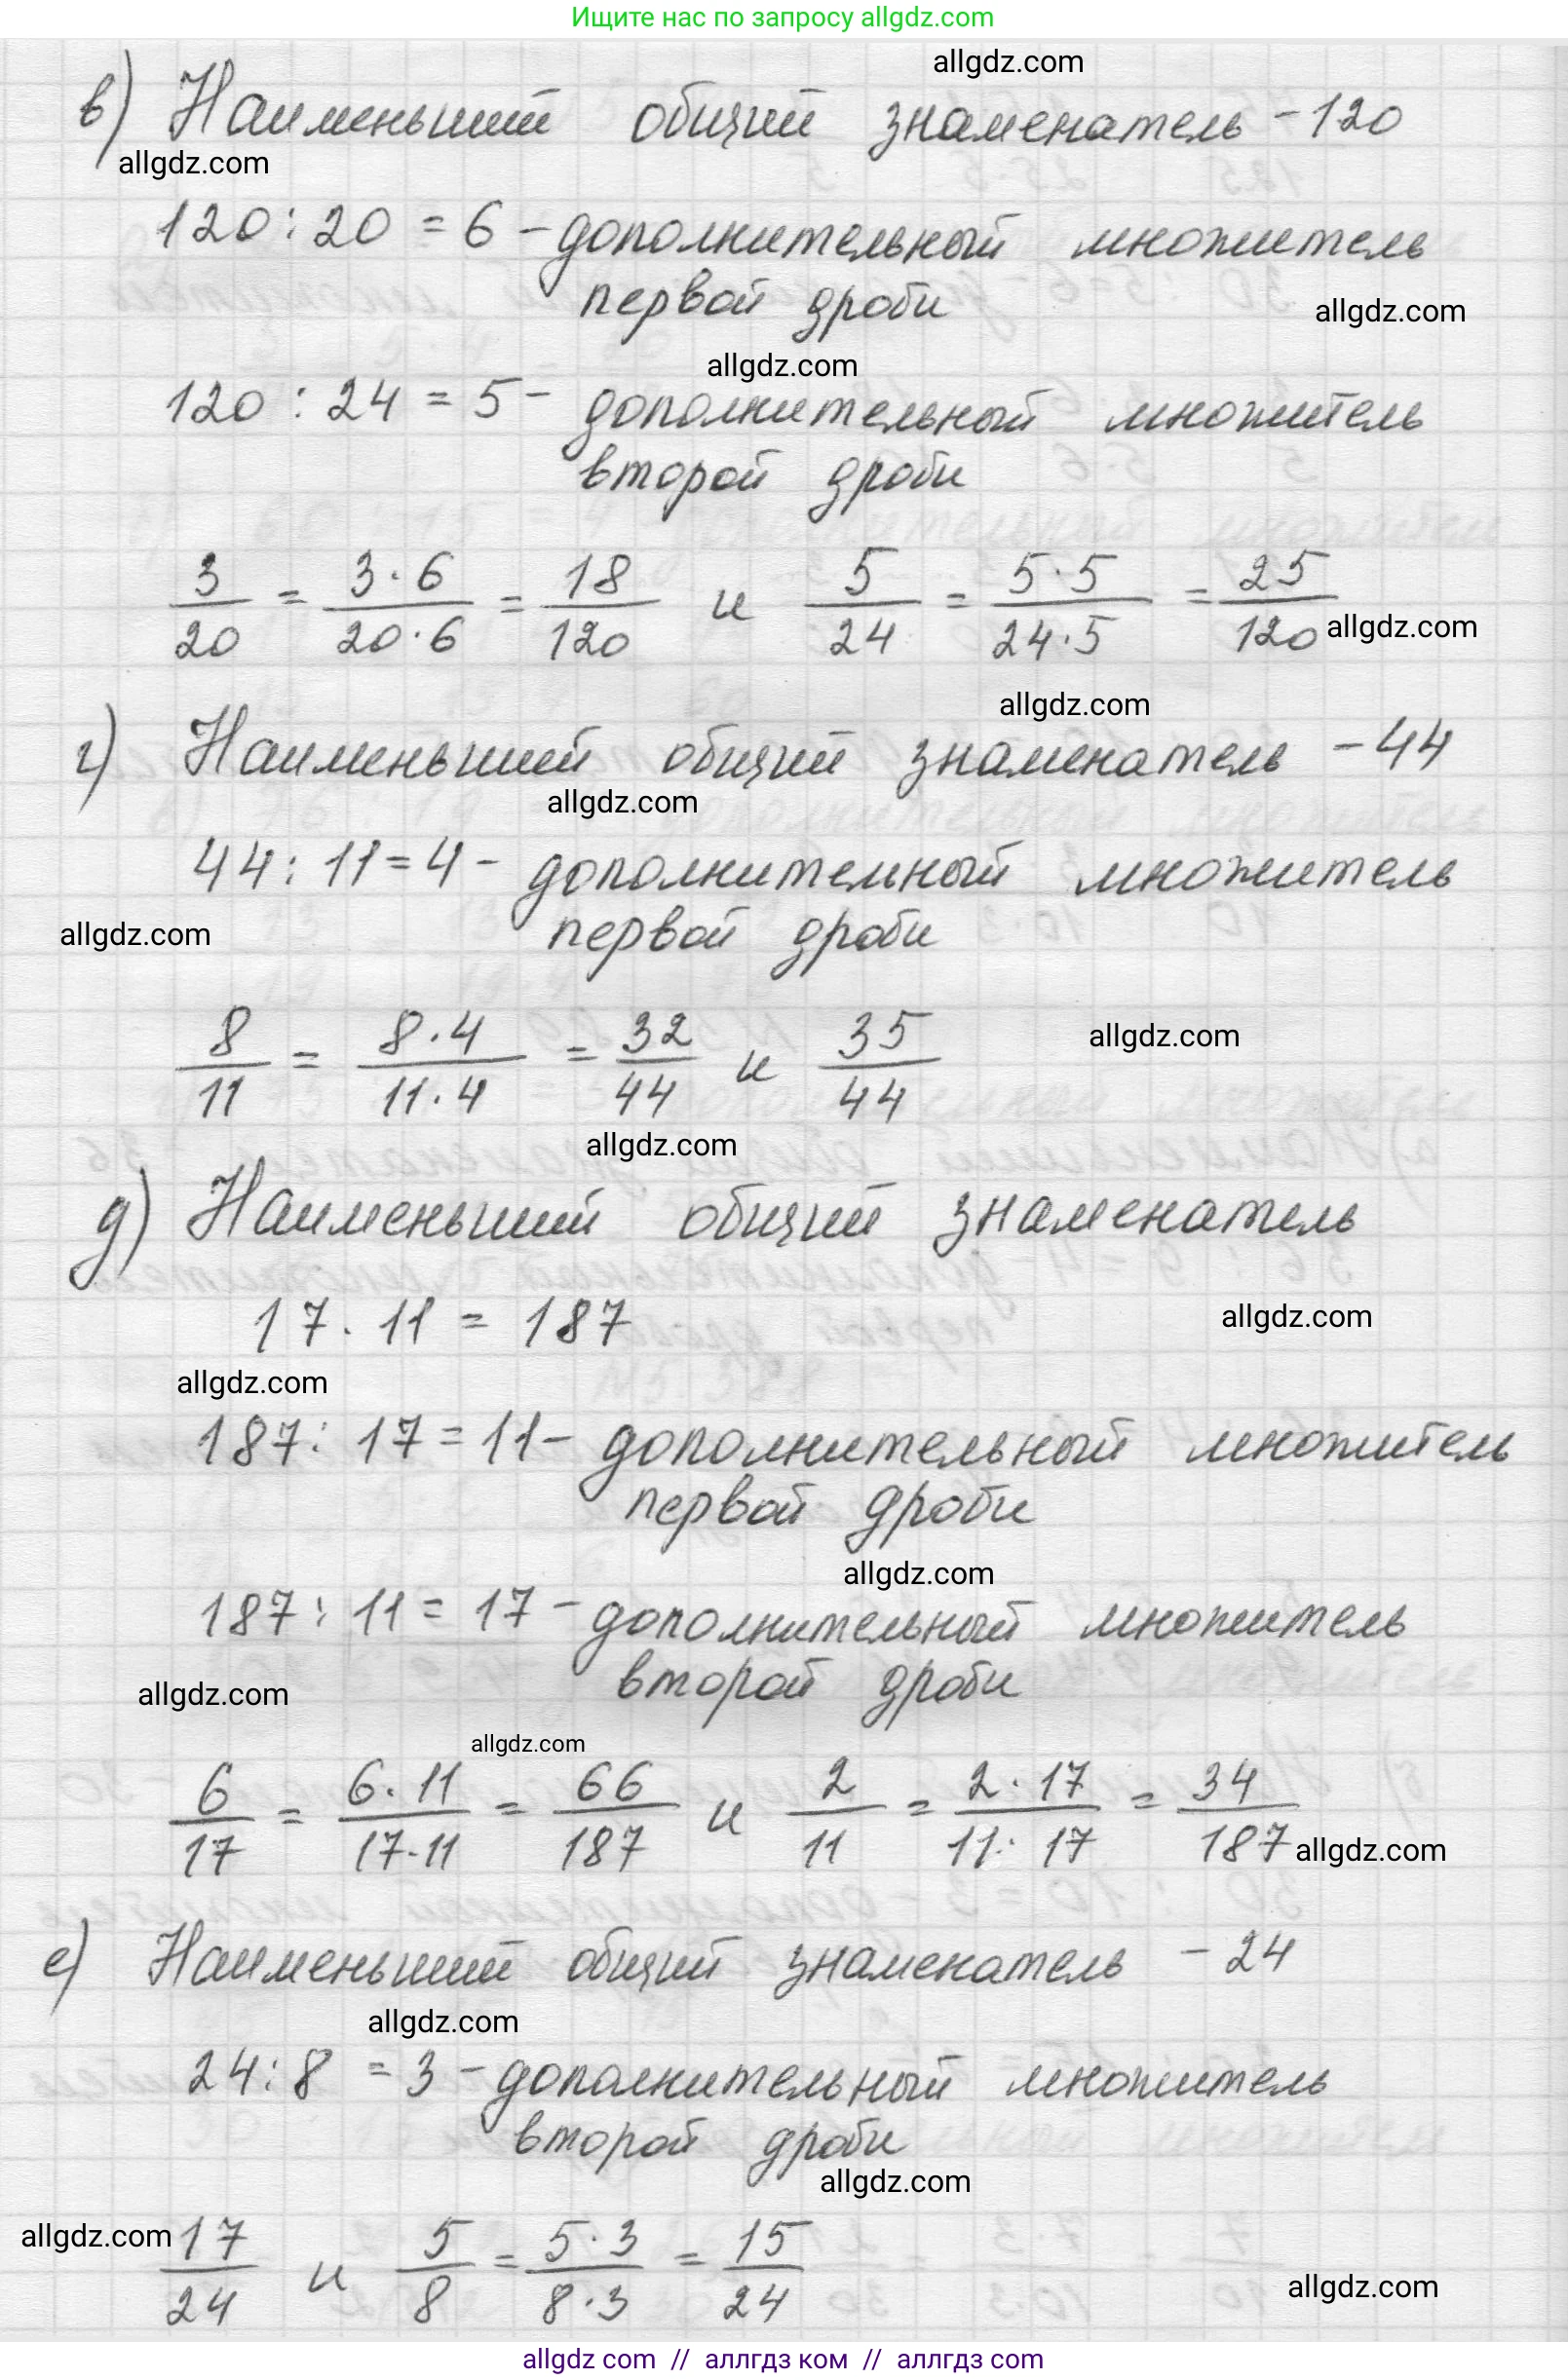 Ищите нас по запросу allgdz.com
allgdz.com
в) Наименьший общий знаменатель - 120
allgdz.com
120 : 20 = 6 - дополнительный множитель
первой дроби
allgdz.com
allgdz.com
120 : 24 = 5 - дополнительный множитель
второй дроби
3/20 = 3·6/20·6 = 18/120 и 5/24 = 5·5/24·5 = 25/120
allgdz.com
allgdz.com
г) Наименьший общий знаменатель - 44
allgdz.com
44 : 11 = 4 - дополнительный множитель
allgdz.com
первой дроби
8/11 = 8·4/11·4 = 32/44 и 35/44
allgdz.com
allgdz.com
д) Наименьший общий знаменатель
17 · 11 = 187
allgdz.com
allgdz.com
187 : 17 = 11 - дополнительный множитель
первой дроби
allgdz.com
187 : 11 = 17 - дополнительный множитель
второй дроби
allgdz.com
allgdz.com
6/17 = 6·11/17·11 = 66/187 и 2/11 = 2·17/11·17 = 34/187
allgdz.com
е) Наименьший общий знаменатель - 24
allgdz.com
24 : 8 = 3 - дополнительный множитель
второй дроби
allgdz.com
allgdz.com
17/24 и 5/8 = 5·3/8·3 = 15/24
allgdz.com
allgdz com // аллгдз ком // аллгдз com